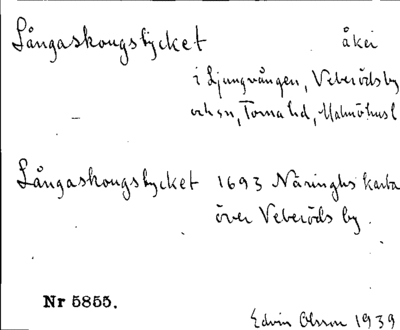 Långaskougstycket åker
i Ljungvången, Veberöds by
och sn, Torna hd, Malmöhus l
Långaskougstycket 1693 Näringhs karta
över Veberöds by.
Nr 5855.
Edvin Olsson 1939